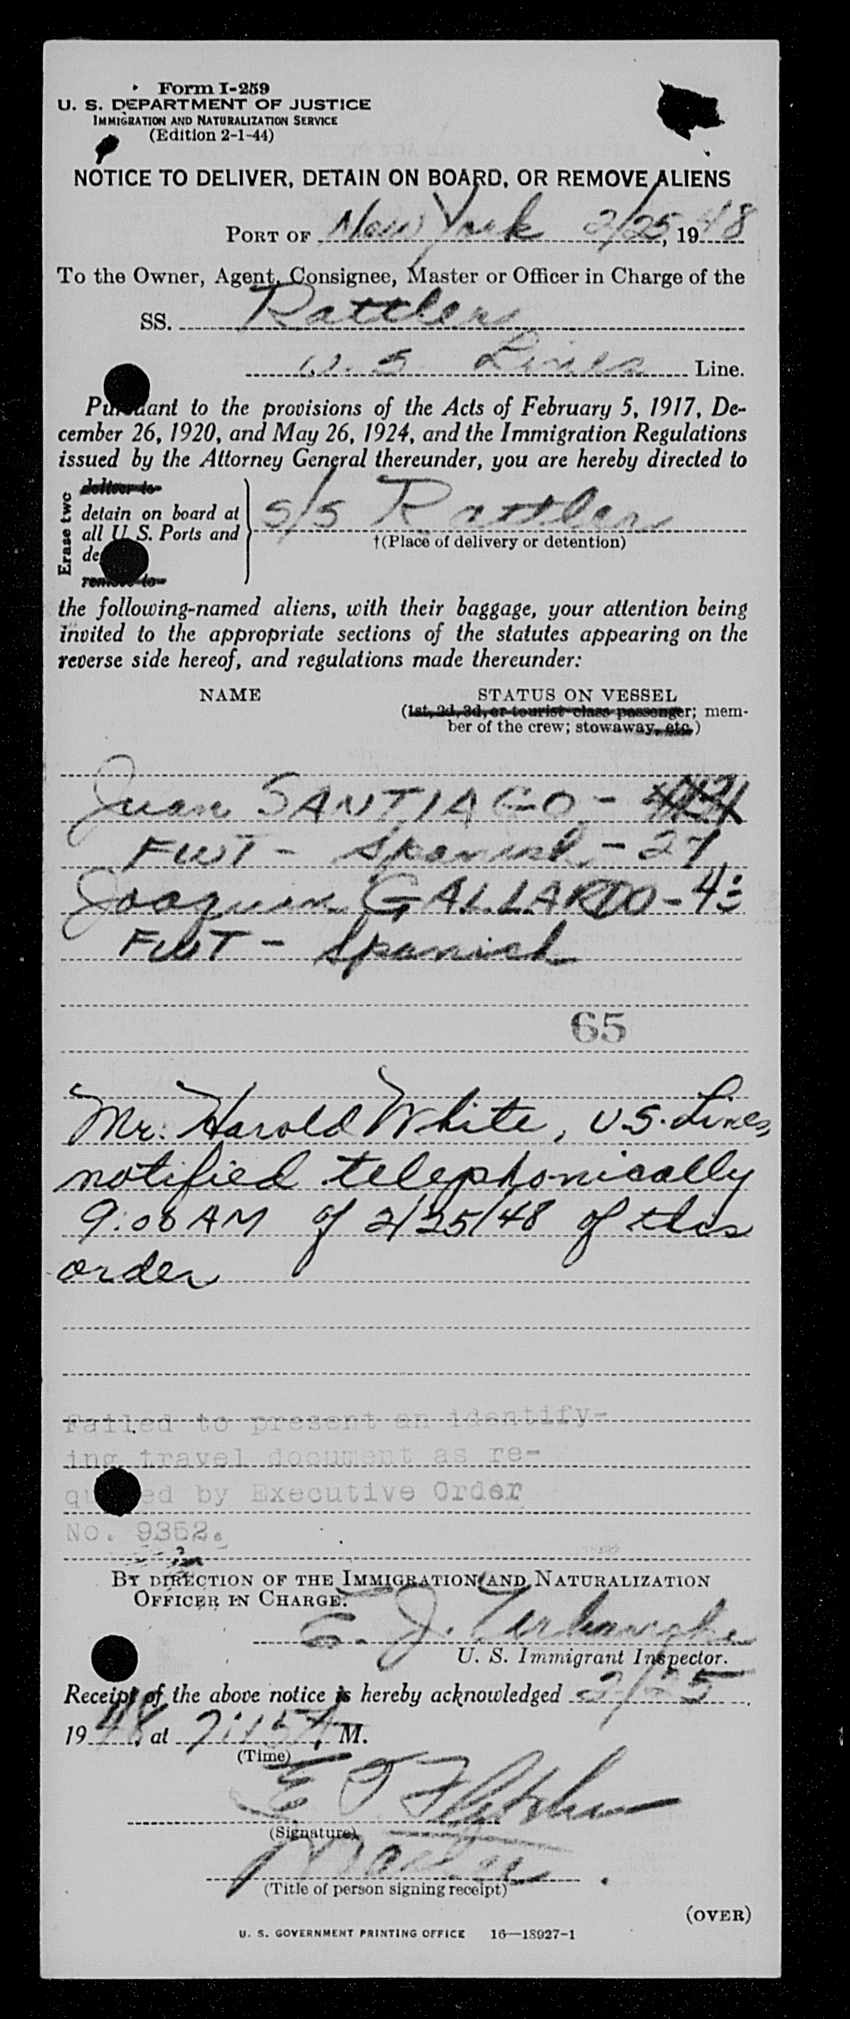 Form I-259
U. S. DEPARTMENT OF JUSTICE
IMMIGRATION AND NATURALIZATION SERVICE
(Edition 2-1-44)
NOTICE TO DELIVER, DETAIN ON BOARD, OR REMOVE ALIENS
PORT OF New York 2/25, 1948
To the Owner, Agent, Consignee, Master or Officer in Charge of the
SS. Rattler
U. S. Lines Line.
Pursuant to the provisions of the Acts of February 5, 1917, De-
cember 26, 1920, and May 26, 1924, and the Immigration Regulations
issued by the Attorney General thereunder, you are hereby directed to
Erase two
deliver to
detain on board at
all U. S. Ports and
remove to
S/S Rattler
†(Place of delivery or detention)
the following-named aliens, with their baggage, your attention being
invited to the appropriate sections of the statutes appearing on the
reverse side hereof, and regulations made thereunder:
NAME STATUS ON VESSEL
(1st, 2d, 3d, or tourist class passenger; mem-
ber of the crew; stowaway, etc.)
Juan SANTIAGO -
FWT - Spanish - 27
Joaquin GALLARDO - 43
FWT - Spanish
65
Mr. Harold White, U.S. Lines,
notified telephonically
9:00 AM of 2/25/48 of this
order
Failed to present an identify-
ing travel document as re-
quired by Executive Order
No. 9352.
BY DIRECTION OF THE IMMIGRATION AND NATURALIZATION
OFFICER IN CHARGE:
E. J.
U. S. Immigrant Inspector.
Receipt of the above notice is hereby acknowledged 2/25,
1948, at 7:15 A M.
(Time)
E T Fletcher
(Signature)
Master
(Title of person signing receipt)
(OVER)
U. S. GOVERNMENT PRINTING OFFICE 16—18927-1